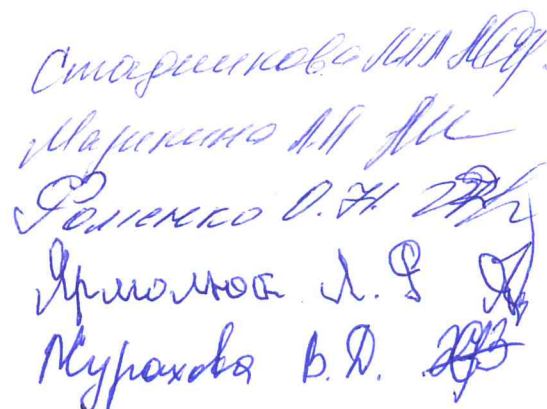 Стадникова
Марикина Л.П.
Фоменко О.Н.
Ярмолюк Л.Ф
Журахова В.Д.